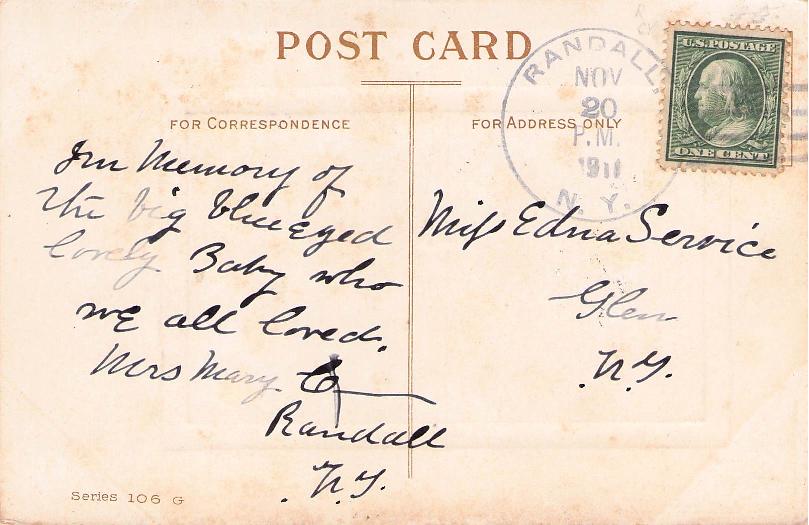 POST CARD
FOR CORRESPONDENCE
FOR ADDRESS ONLY
RANDALL,
NOV
20
P.M.
1911
N. Y.
U.S. POSTAGE
ONE CENT
In Memory of
the big blue Eyed
lovely Baby who
we all loved.
Mrs Mary
Randall
N.Y.
Miss Edna Service
Glen
N.Y.
Series 106 G